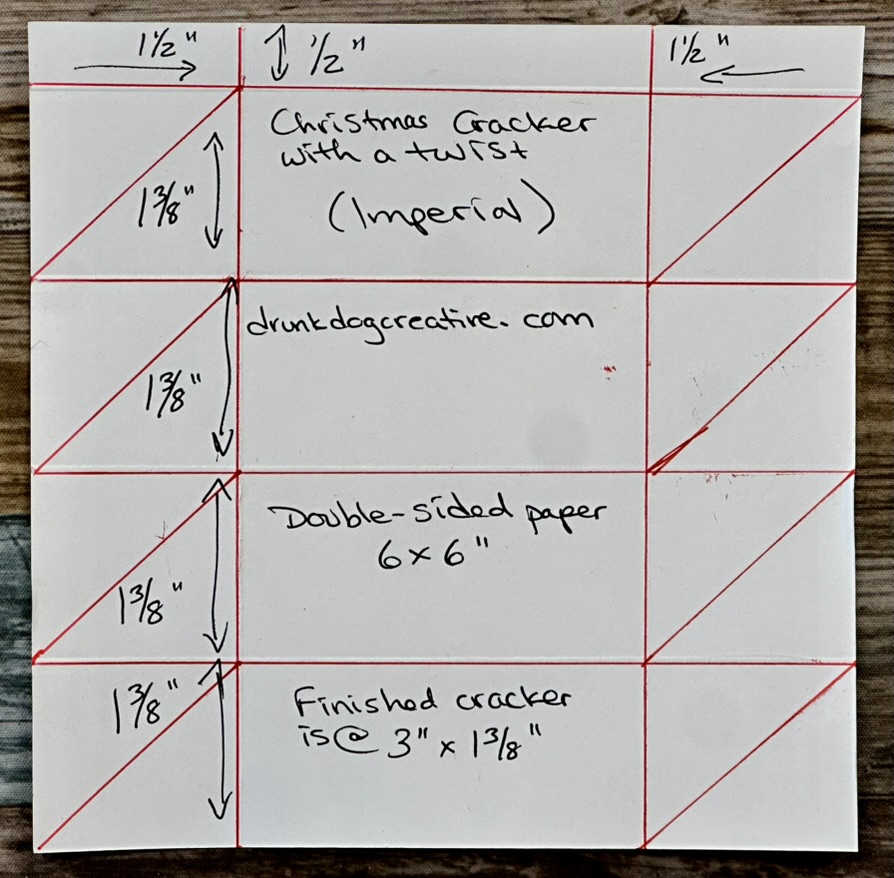 1 1/2"
1/2"
1 1/2"
Christmas Cracker
with a twist
1 3/8"
(Imperial)
drunkdogcreative.com
1 3/8"
Double-sided paper
6 x 6"
1 3/8"
1 3/8"
Finished cracker
is @ 3" x 1 3/8"